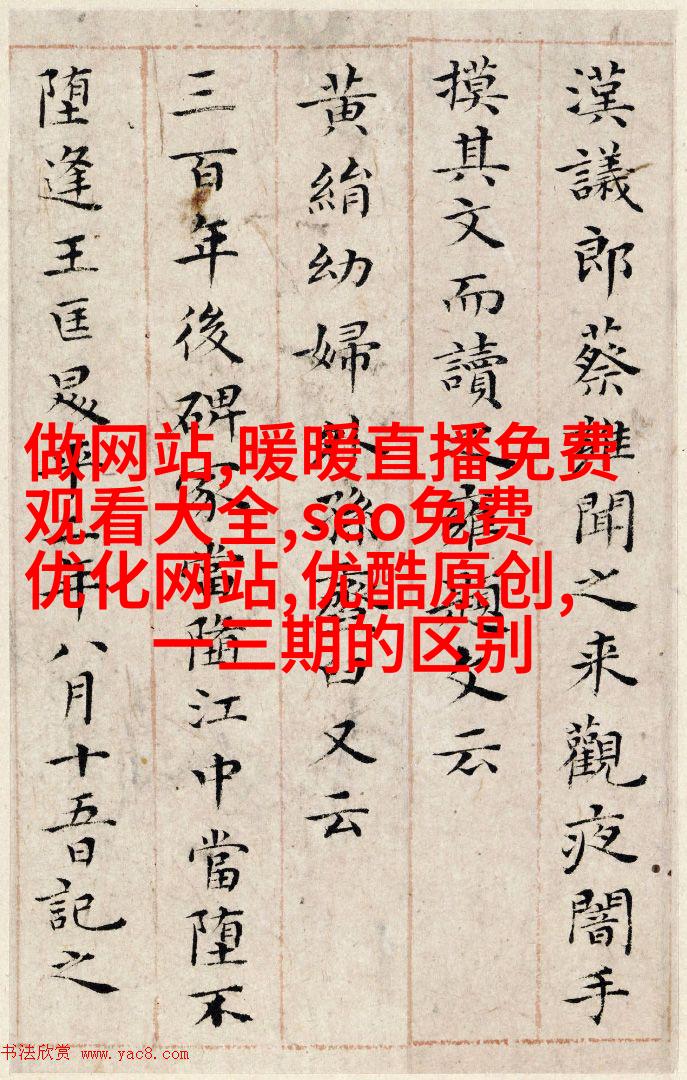 漢議郎蔡雍聞之来觀夜闇手
摸其文而讀之雍題文云
黃絹幼婦外孫又云
三百年後碑冢當堕江中當堕不
堕逢王匡昇平年八月十五日記之
做网站,暖暖直播免费
观看大全,seo免费
优化网站,优酷原创,
一三期的区别
书法欣赏 www.yac8.com